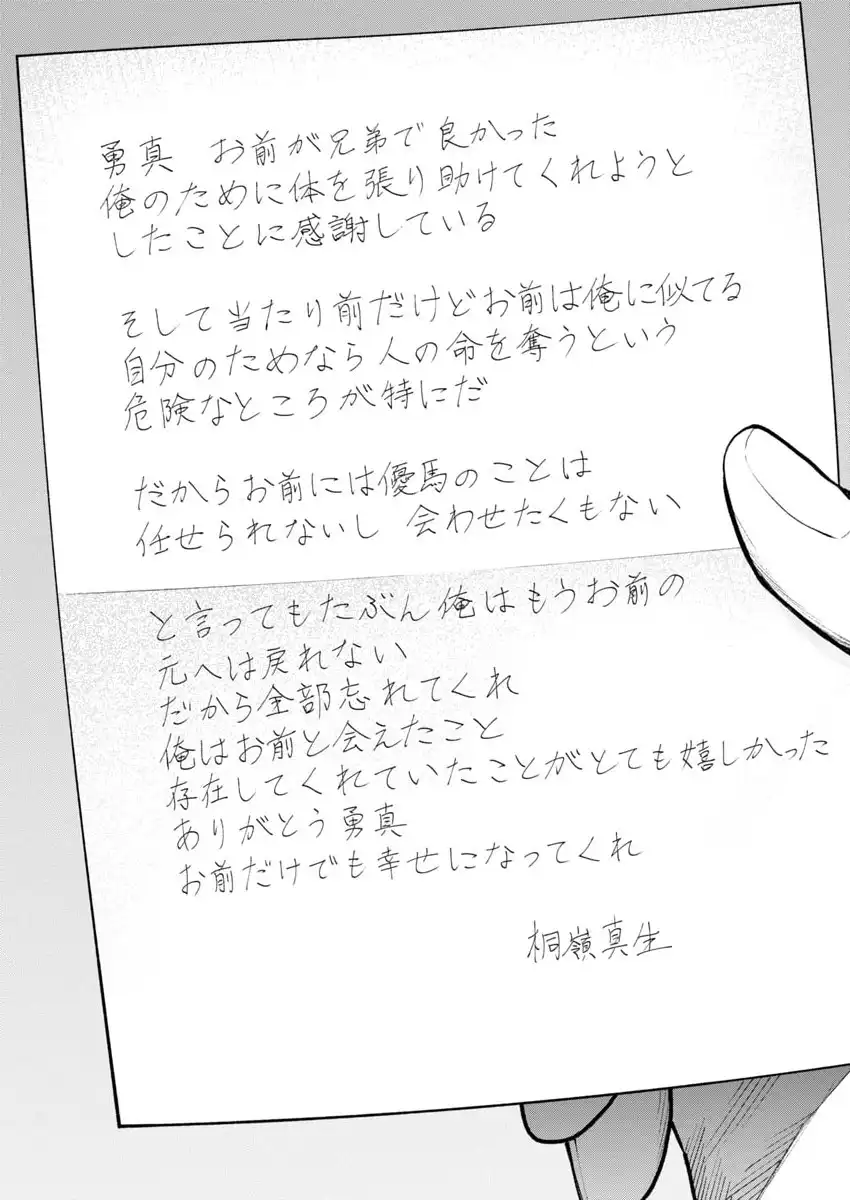 勇真　お前が兄弟で良かった
俺のために体を張り助けてくれようと
したことに感謝している
そして当たり前だけどお前は俺に似てる
自分のためなら人の命を奪うという
危険なところが特にだ
だからお前には優馬のことは
任せられないし　会わせたくもない
と言ってもたぶん俺はもうお前の
元へは戻れない
だから全部忘れてくれ
俺はお前と会えたこと
存在してくれていたことがとても嬉しかった
ありがとう勇真
お前だけでも幸せになってくれ
桐嶺真生